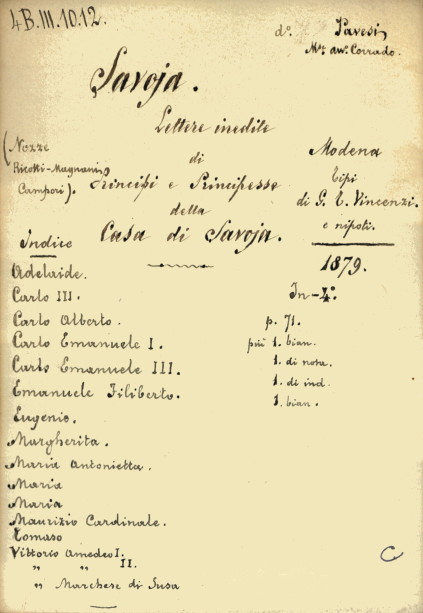 4B.III.10.12.
d°. Pavesi
M.se avv. Corrado.
Savoja.
Lettere inedite
(Nozze
Ricotti-Magnani,
Campori).
di
Principi e Principesse
della
Casa di Savoja.
Modena
Tipi
di G. T. Vincenzi.
e nipoti.
1879.
In-4°.
p. 71.
più 1. bian.
1. di nota.
1. di ind.
1. bian.
Indice
Adelaide.
Carlo III.
Carlo Alberto.
Carlo Emanuele I.
Carlo Emanuele III.
Emanuele Filiberto.
Eugenio.
Margherita.
Maria Antonietta.
Maria
Maria
Maurizio Cardinale.
Tomaso
Vittorio Amedeo I.
„ „ II.
„ Marchese di Susa
C